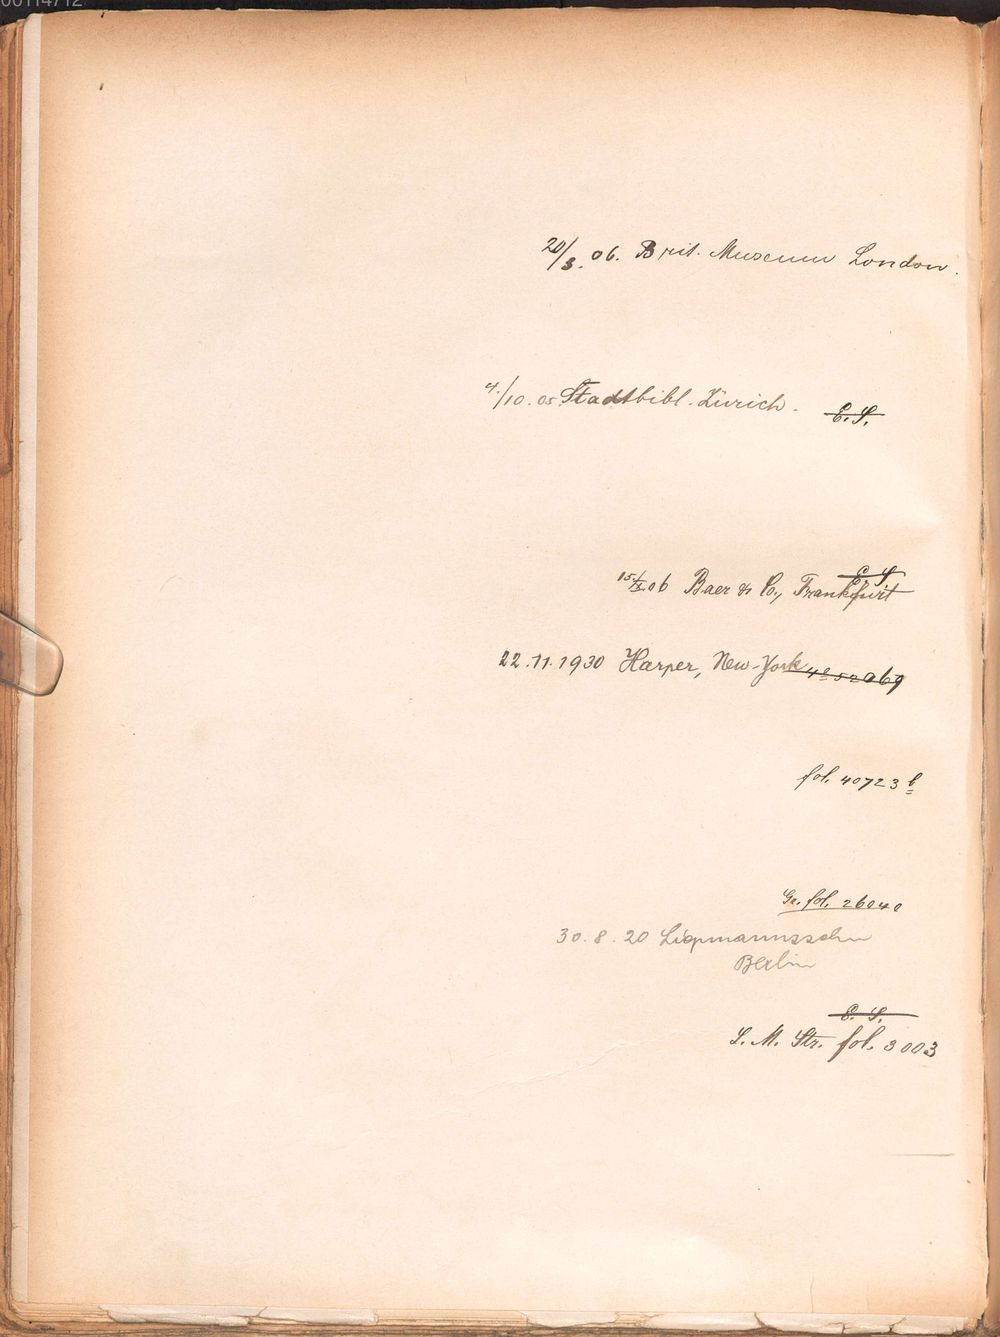 00114712
20/3. 06. Brit. Museum London.
4./10. 05. Stadtbibl. Zürich. E. S.
E. S.
15/X. 06 Baer & Co., Frankfurt
22.11.1930 Harper, New-York 4° 52069
fol. 40723 b
Ge. fol. 26040
30. 8. 20 Liepmannssohn
Berlin
E. S.
L. M. Str. fol. 3003